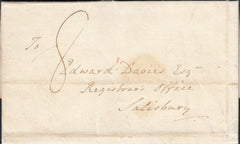 To 8
Edward Davies Esqr
Registrar's Office
Salisbury